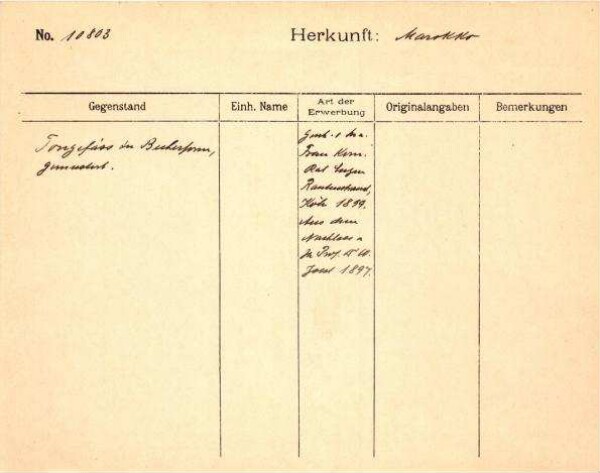 No. 10803
Herkunft: Marokko
Gegenstand
Einh. Name
Art der
Erwerbung
Originalangaben
Bemerkungen
Tongefäss in Becherform,
gemustert.
Frau Kom.
Rat Eugen
Rautenstrauch,
Köln 1899.
Aus dem
Nachlass
Prof. Dr. W.
Joest 1897.